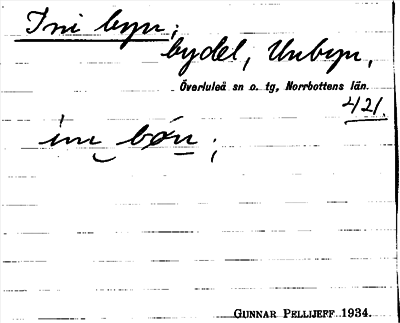 Ini byn;
bydel, Unbyn,
Överluleå sn o. tg, Norrbottens län.
421.
i̇nı bón;
GUNNAR PELLIJEFF 1934.